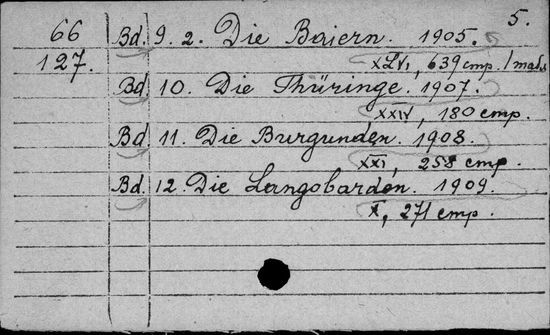 5.
66 Bd. 9. 2. Die Baiern. 1905.
127. XLVI, 639 стр. /
Bd. 10. Die Thüringe. 1907.
XXIV, 180 стр.
Bd. 11. Die Burgunden. 1908.
XXI, 258 стр.
Bd. 12. Die Langobarden. 1909.
X, 271 стр.